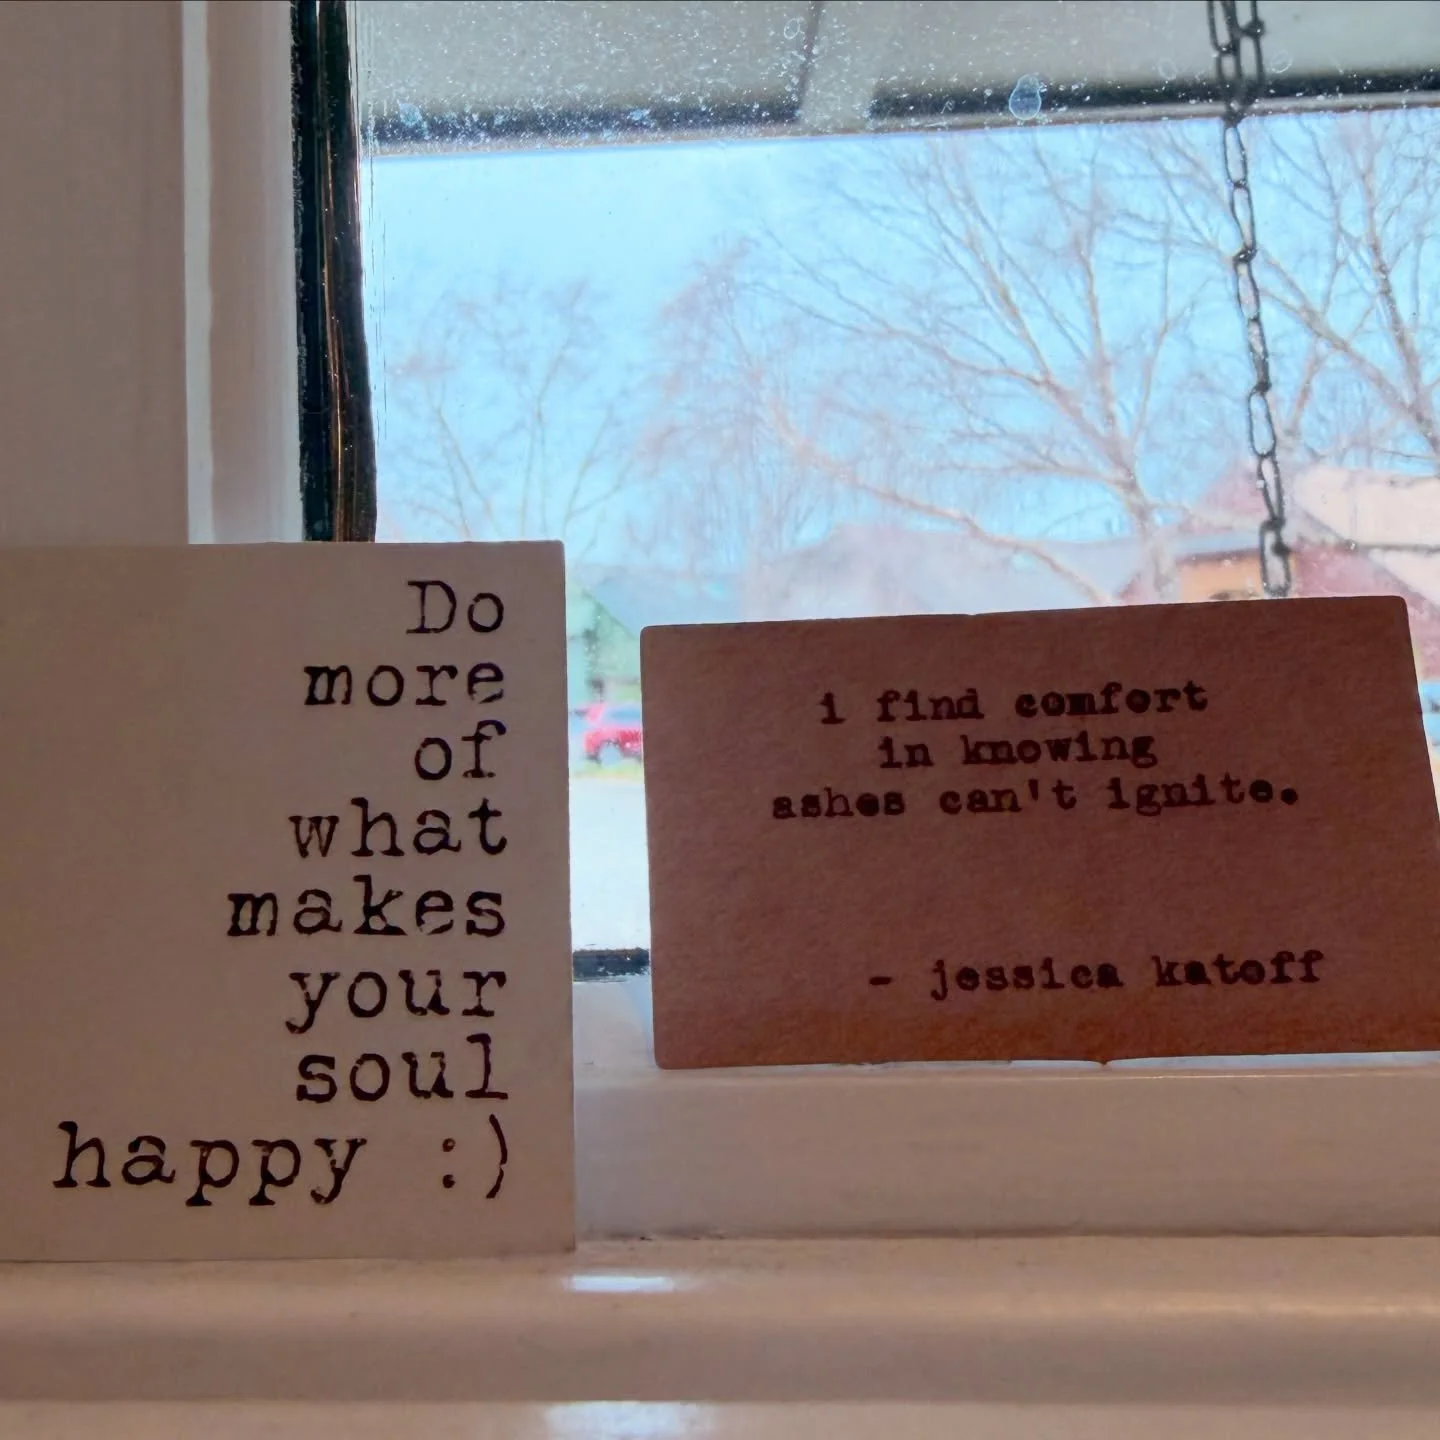 Do
more
of
what
makes
your
soul
happy :)
i find comfort
in knowing
ashes can't ignite.
- jessica katoff